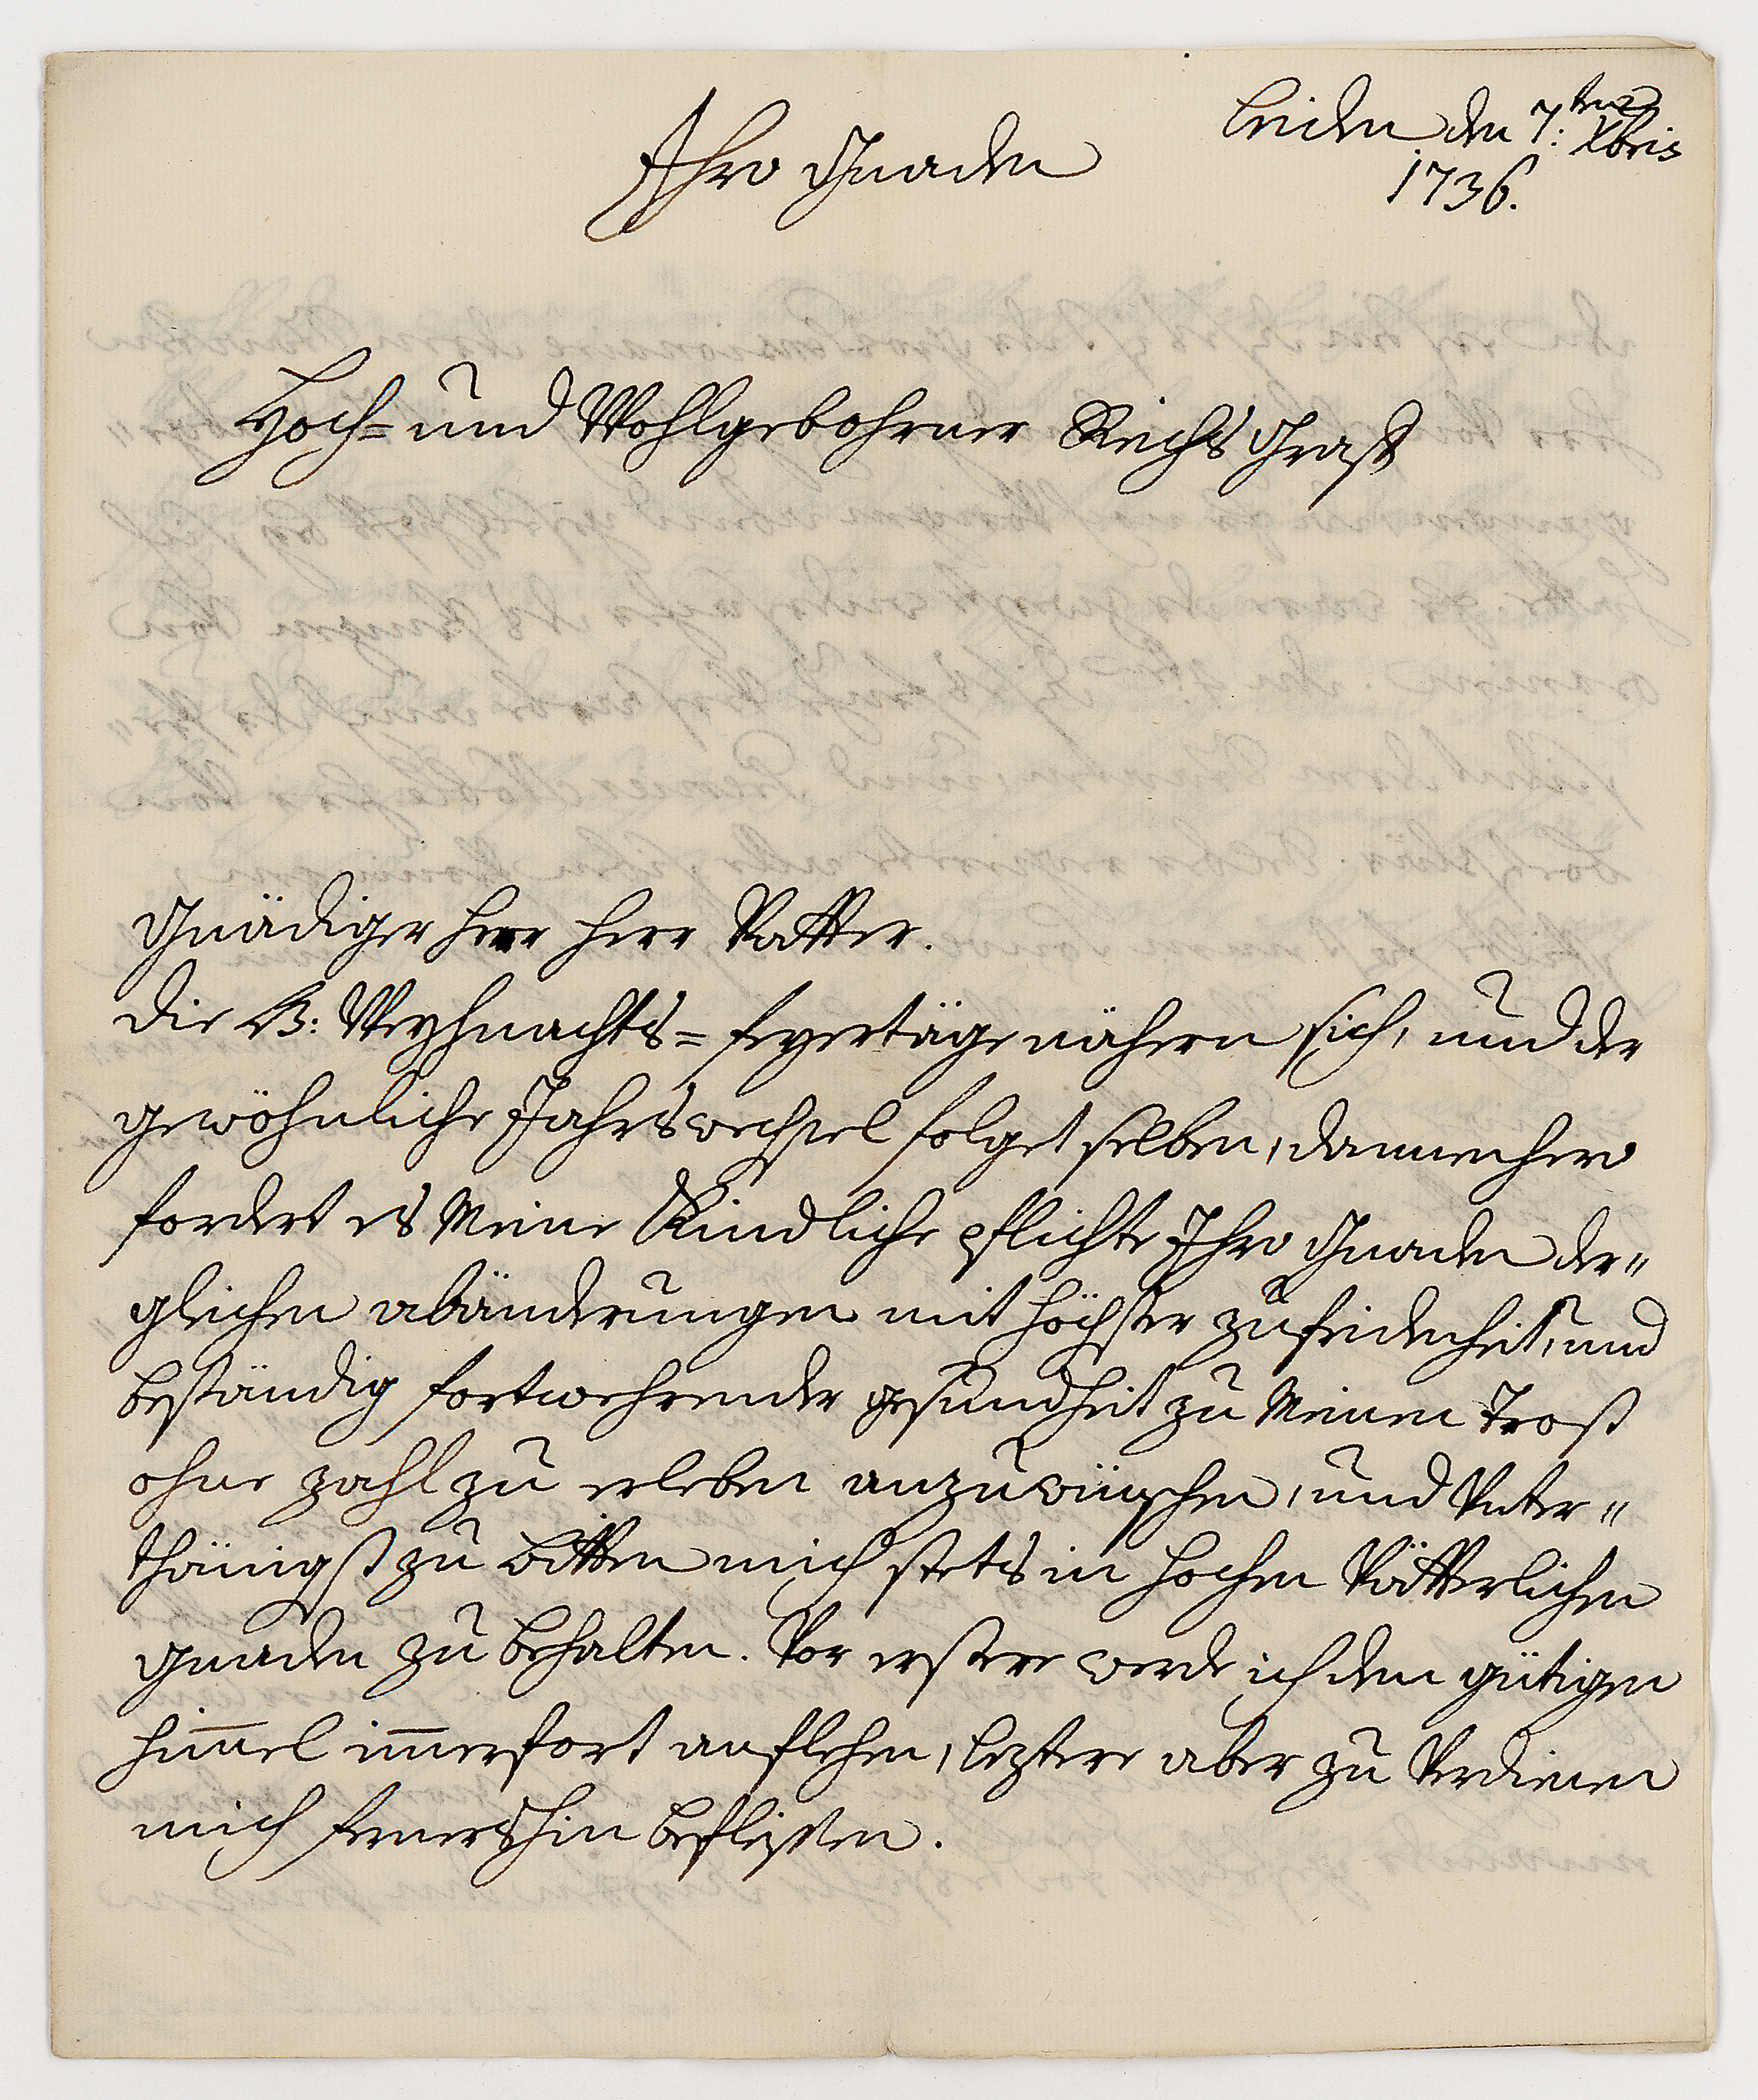 Leiden den 7:ten Xbris
1736.
Ihro Gnaden
Hoch= und Wohlgebohrner Reichs Graff
Gnädiger herr herr Vatter.
Die H: Weyhnachts= feyertäge nähern sich, und der
gewöhnliche Jahrswechsel folget selben, dannenhero
fordert es Meine Kindliche pflichte Ihro Gnaden der"
gleichen abänderungen mit höchster zufridenheit, und
beständig fortwehrender gesundheit zu Meinen Trost
ohne zahl zu erleben anzuwünschen, und Unter"
thänigst zu bitten mich stets in hochen Vätterlichen
gnaden zu behalten. Vor erstere werde ich den gütigen
himmel immerfort anflehen, leztere aber zu Verdienen
mich fernershin befleissen.